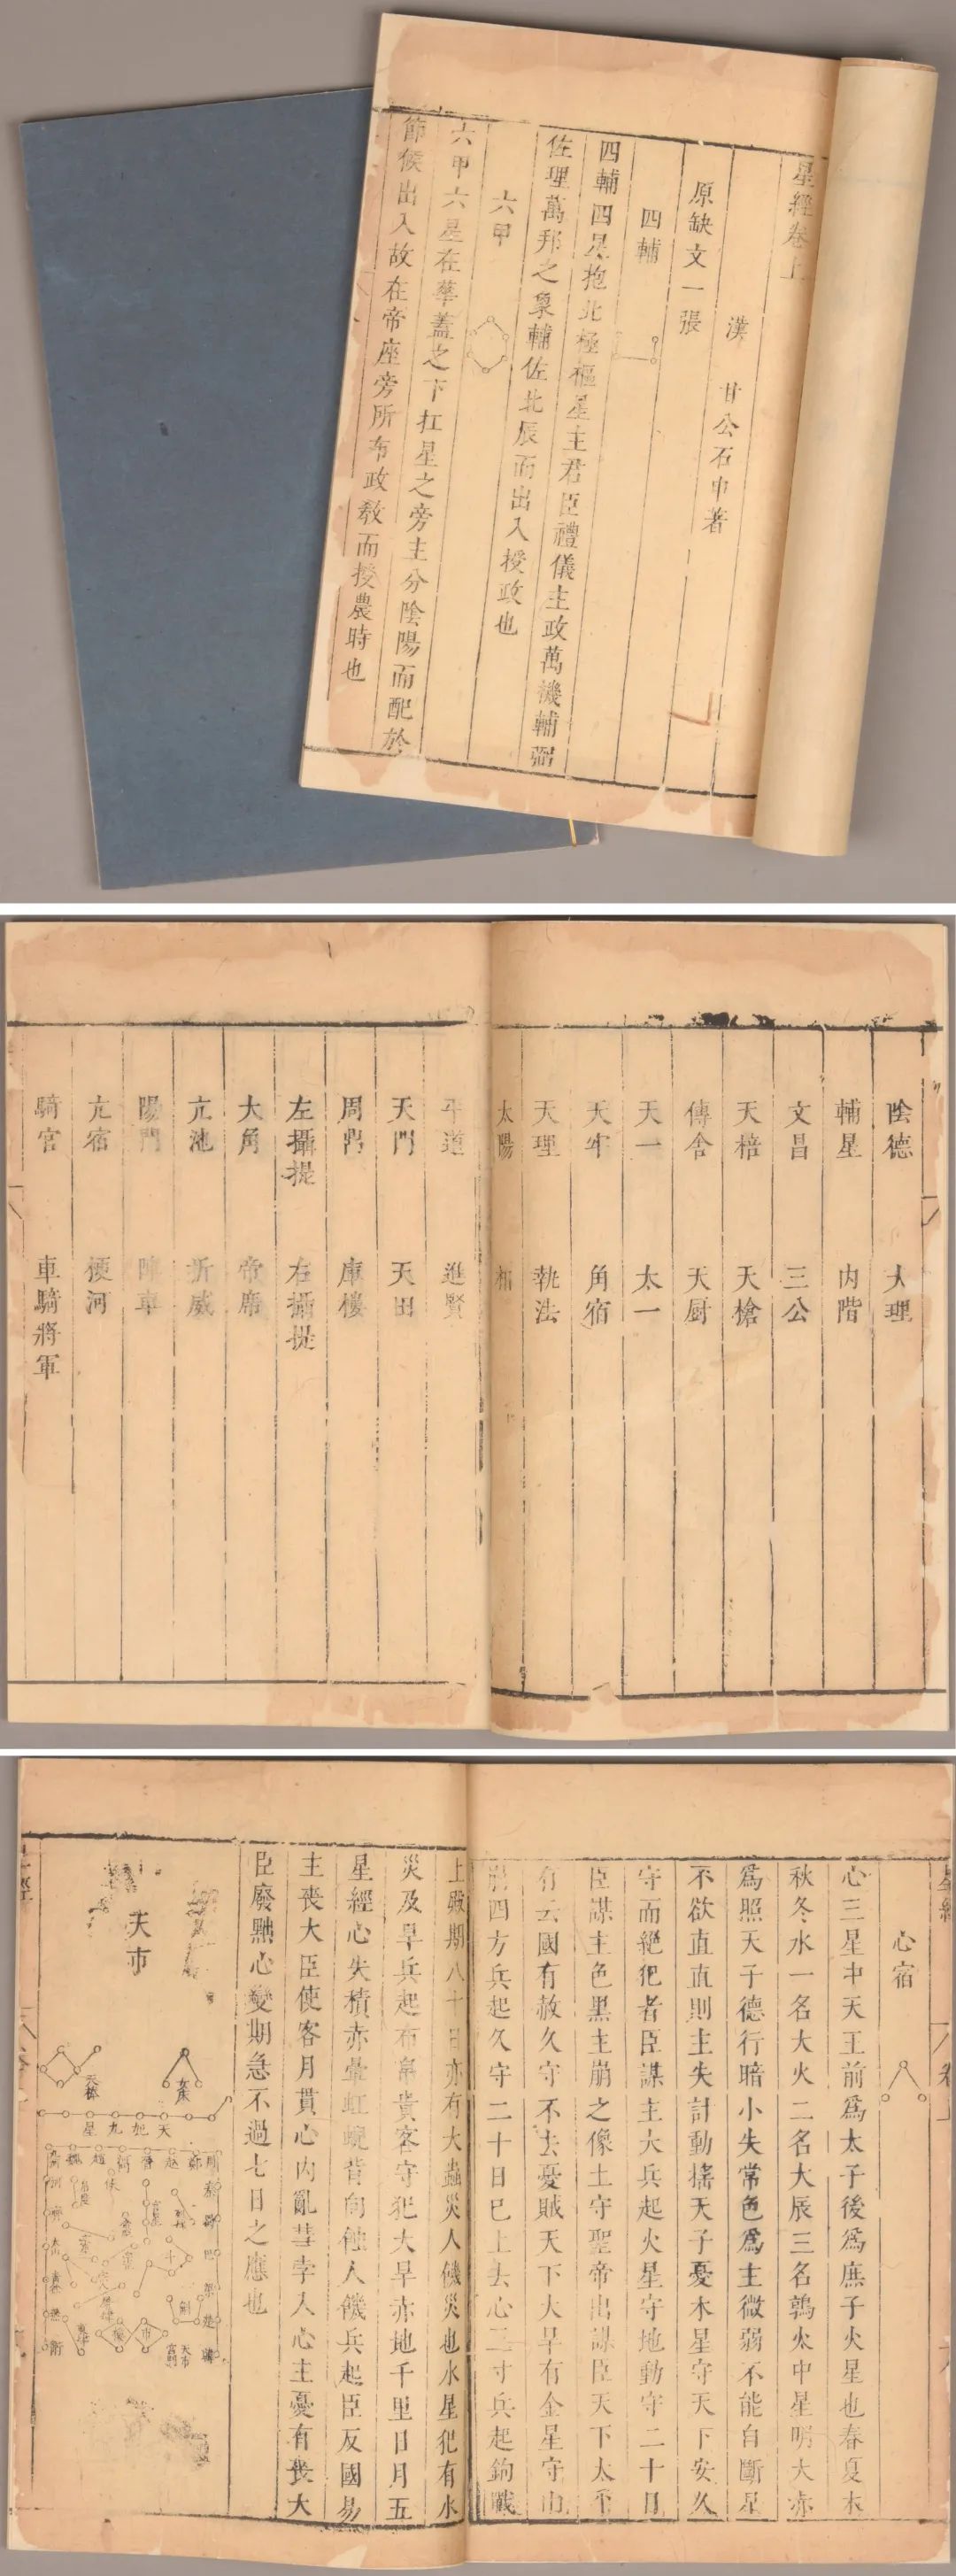 星經卷上
漢 甘公石申著
原缺文一張
四輔
四輔四星抱北極樞星主君臣禮儀主政萬機輔弼
佐理萬邦之象輔佐北辰而出入授政也
六甲
六甲六星在華蓋之下扛星之旁主分陰陽而配於
節候出入故在帝座旁所布政教而授農時也
陰德 大理
輔星 內階
文昌 三公
天棓 天槍
傳舍 天厨
天一 太一
天牢 角宿
天理 執法
太陽 相
平道 進賢
天門 天田
周鼎 庫樓
左攝提 右攝提
大角 帝席
亢池 折威
陽門 陣車
亢宿 梗河
騎官 車騎將軍
星經
卷上
心宿
心三星中天王前爲太子後爲庶子火星也春夏木
秋冬水一名大火二名大辰三名鶉火中星明大赤
爲照天子德行暗小失常色爲主微弱不能自斷星
不欲直直則主失計動搖天子憂木星守天下安久
守而絕犯者臣謀主大兵起火星守地動守二十日
臣謀主色黑主崩之像土守聖帝出謀臣天下太平
有云國有赦久守不去憂賊天下大旱有金星守
四方兵起久守二十日巳上去心三寸兵起鉤戰
上敗期八十日亦有大蟲災人饑災也水星犯有水
災及旱兵起布帛貴客守犯大旱赤地千里日月五
星經心失積赤暈虹蜺背向蝕人饑兵起臣反國易
主喪大臣使客月貫心內亂彗孛入心主憂有喪大
臣廢黜心變期急不過七日之應也
天市
天棓
女床
天紀九星
斗
市
天市